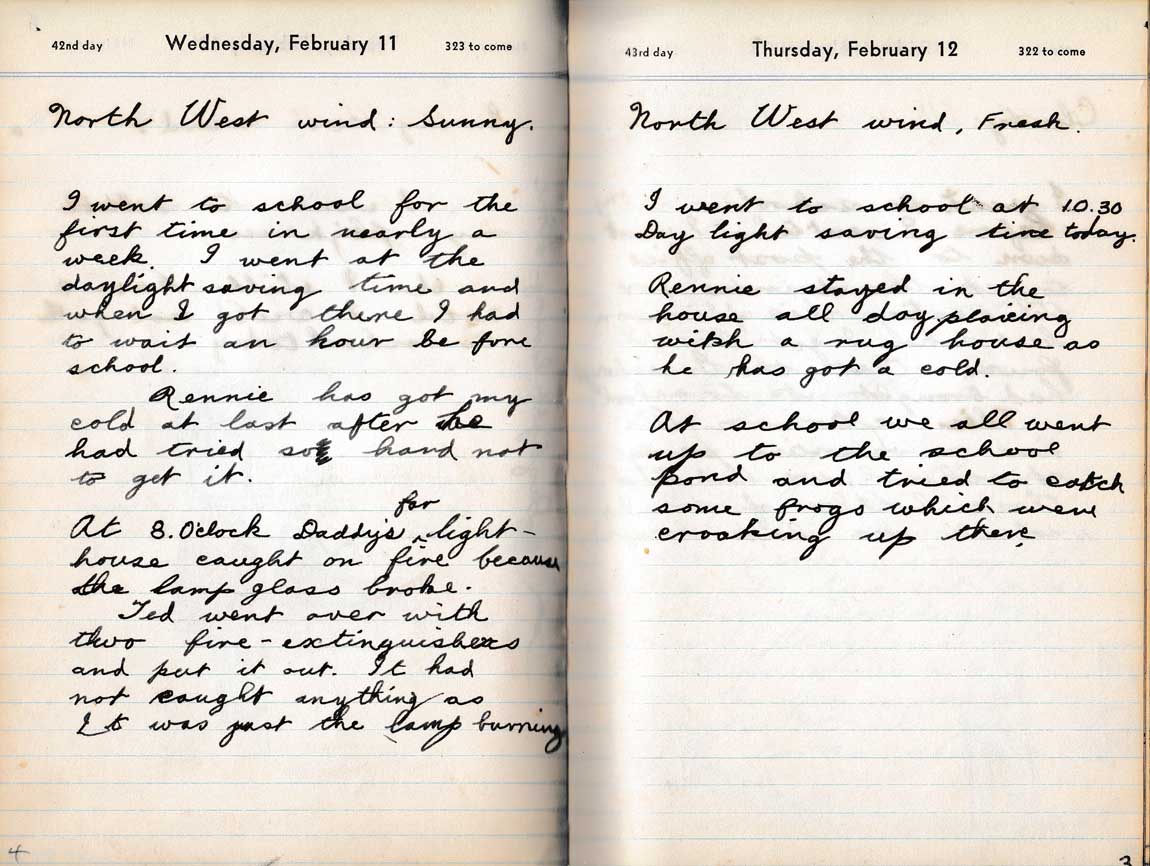 42nd day Wednesday, February 11 323 to come
North West wind: Sunny.
I went to school for the
first time in nearly a
week. I went at the
daylight saving time and
when I got there I had
to wait an hour be fore
school.
Rennie has got my
cold at last after he
had tried so hard not
to get it.
far
At 8.O'clock Daddy's light-
house caught on fire because
the lamp glass broke.
Ted went over with
two fire-extinguishers
and put it out. It had
not caught anything as
It was just the lamp burning
4
43rd day Thursday, February 12 322 to come
North West wind, Fresh.
I went to school at 10.30
Day light saving time today.
Rennie stayed in the
house all day playing
with a rug house as
he has got a cold.
At school we all went
up to the school
pond and tried to catch
some frogs which were
croaking up there.
3